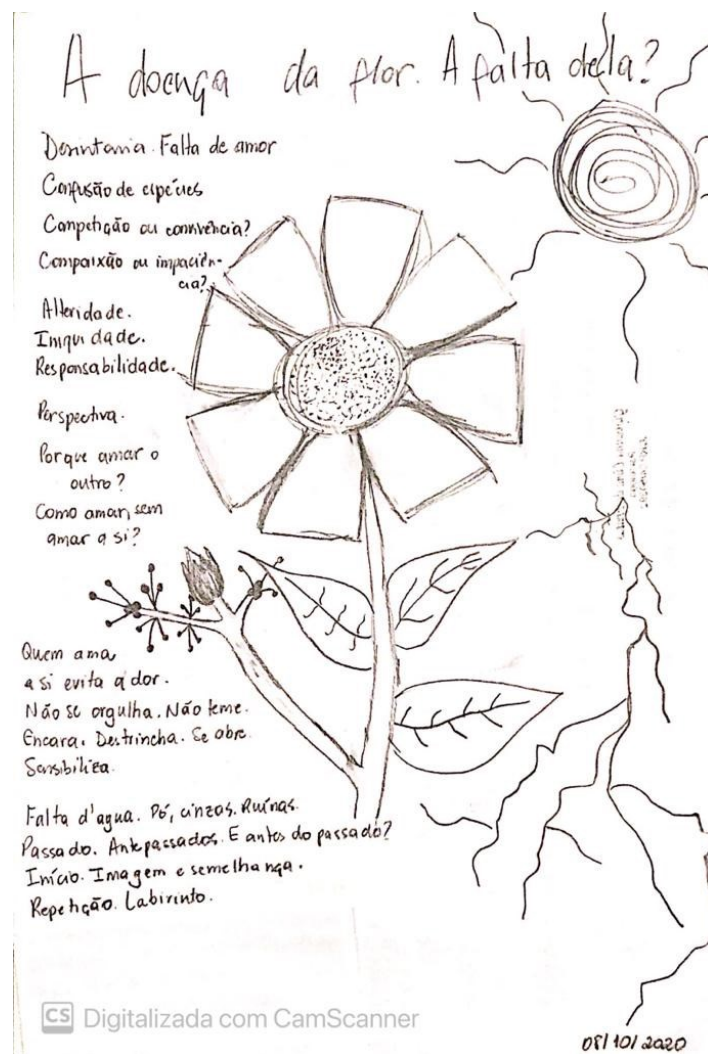 A doença da flor. A falta dela?
Desintonia. Falta de amor
Confusão de espécies
Competição ou convivência?
Compaixão ou impaciên-
cia?
Alteridade.
Iniquidade.
Responsabilidade.
Perspectiva.
Porque amar o
outro?
Como amar, sem
amar a si?
Quem ama
a si evita a dor.
Não se orgulha. Não teme.
Encara. Destrincha. Se abre.
Sensibiliza.
Falta d'agua. Pó, cinzas. Ruínas.
Passado. Antepassados. E antes do passado?
Início. Imagem e semelhança.
Repetição. Labirinto.
CS Digitalizada com CamScanner
08/10/2020